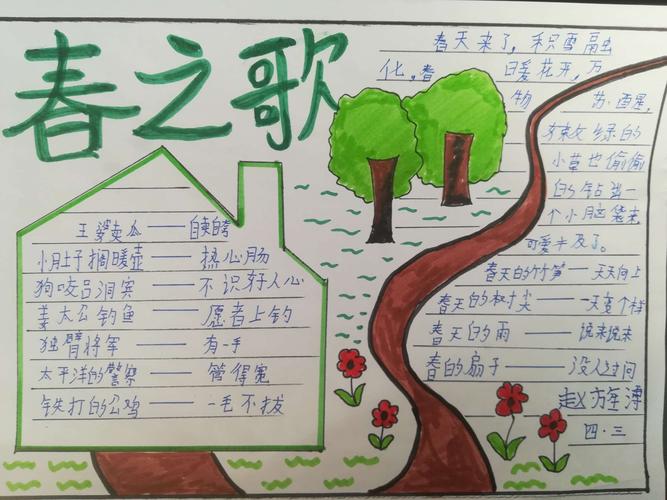 春之歌
春天来了，积雪融
化，春 日暖花开，万
物 苏醒，
嫩绿的
小草也偷偷
的钻出一
个小脑袋来
可爱极了。
王婆卖瓜——自卖自夸
小肚子捆暖壶——热心肠
狗咬吕洞宾——不识好人心
姜太公钓鱼——愿者上钓
独臂将军——有一手
太平洋的警察——管得宽
铁打的公鸡——一毛不拔
春天的竹笋——天天向上
春天的树尖——一天变个样
春天的雨——说来就来
春的扇子——没人过问
四·三